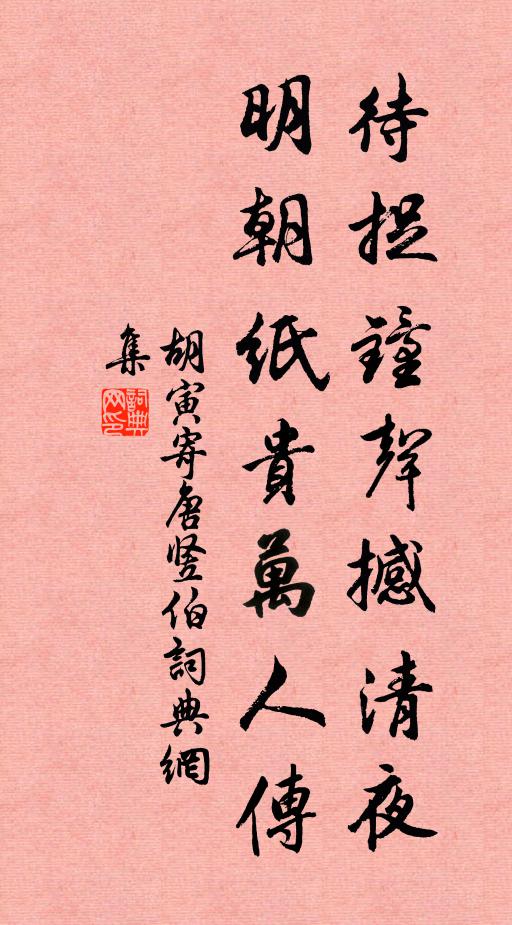 待捉鐘聲撼清夜
明朝紙貴萬人傳
胡寅寄唐竖伯詞典網
集
詞典網印